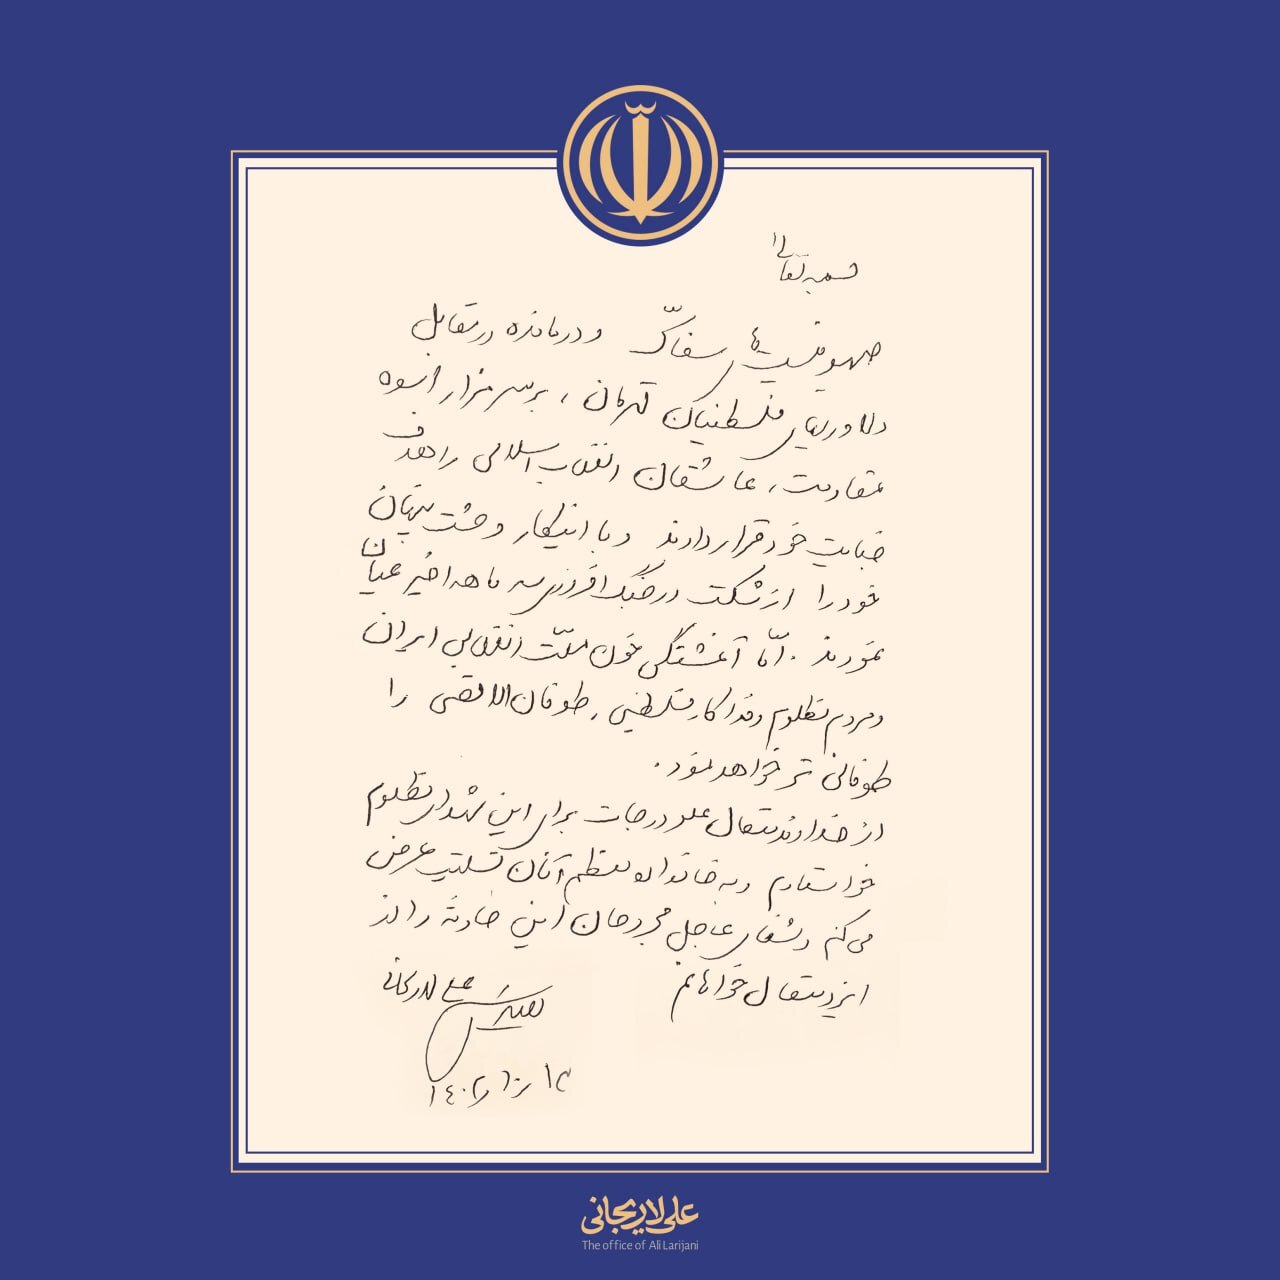 بسمه تعالی
صهیونیست‌های سفاک و درمانده در مقابل
دلاوریهای فلسطنیان قهرمان، بر سر مزار اسوه
مقاومت، عاشقان انقلاب اسلامی را هدف
خباثت خود قرار دادند و با اینکار وحشت پنهان
خود را از شکست در جنگ افروزی سه ماهه اخیر عیان
نمودند. امّا آغشتگی خون ملّت انقلابی ایران
و مردم مظلوم و فداکار فلسطینی، طوفان الاقصی را
طوفانی تر خواهد نمود.
از خداوند متعال علو درجات برای این شهدای مظلوم
خواستارم و به خانواده معظم آنان تسلیت عرض
می‌کنم و شفای عاجل مجروحان این حادثه را از
ایزد متعال خواهانم
علی لاریجانی
۱۴۰۲/۱۰/۱۳
علی لاریجانی
The office of Ali Larijani